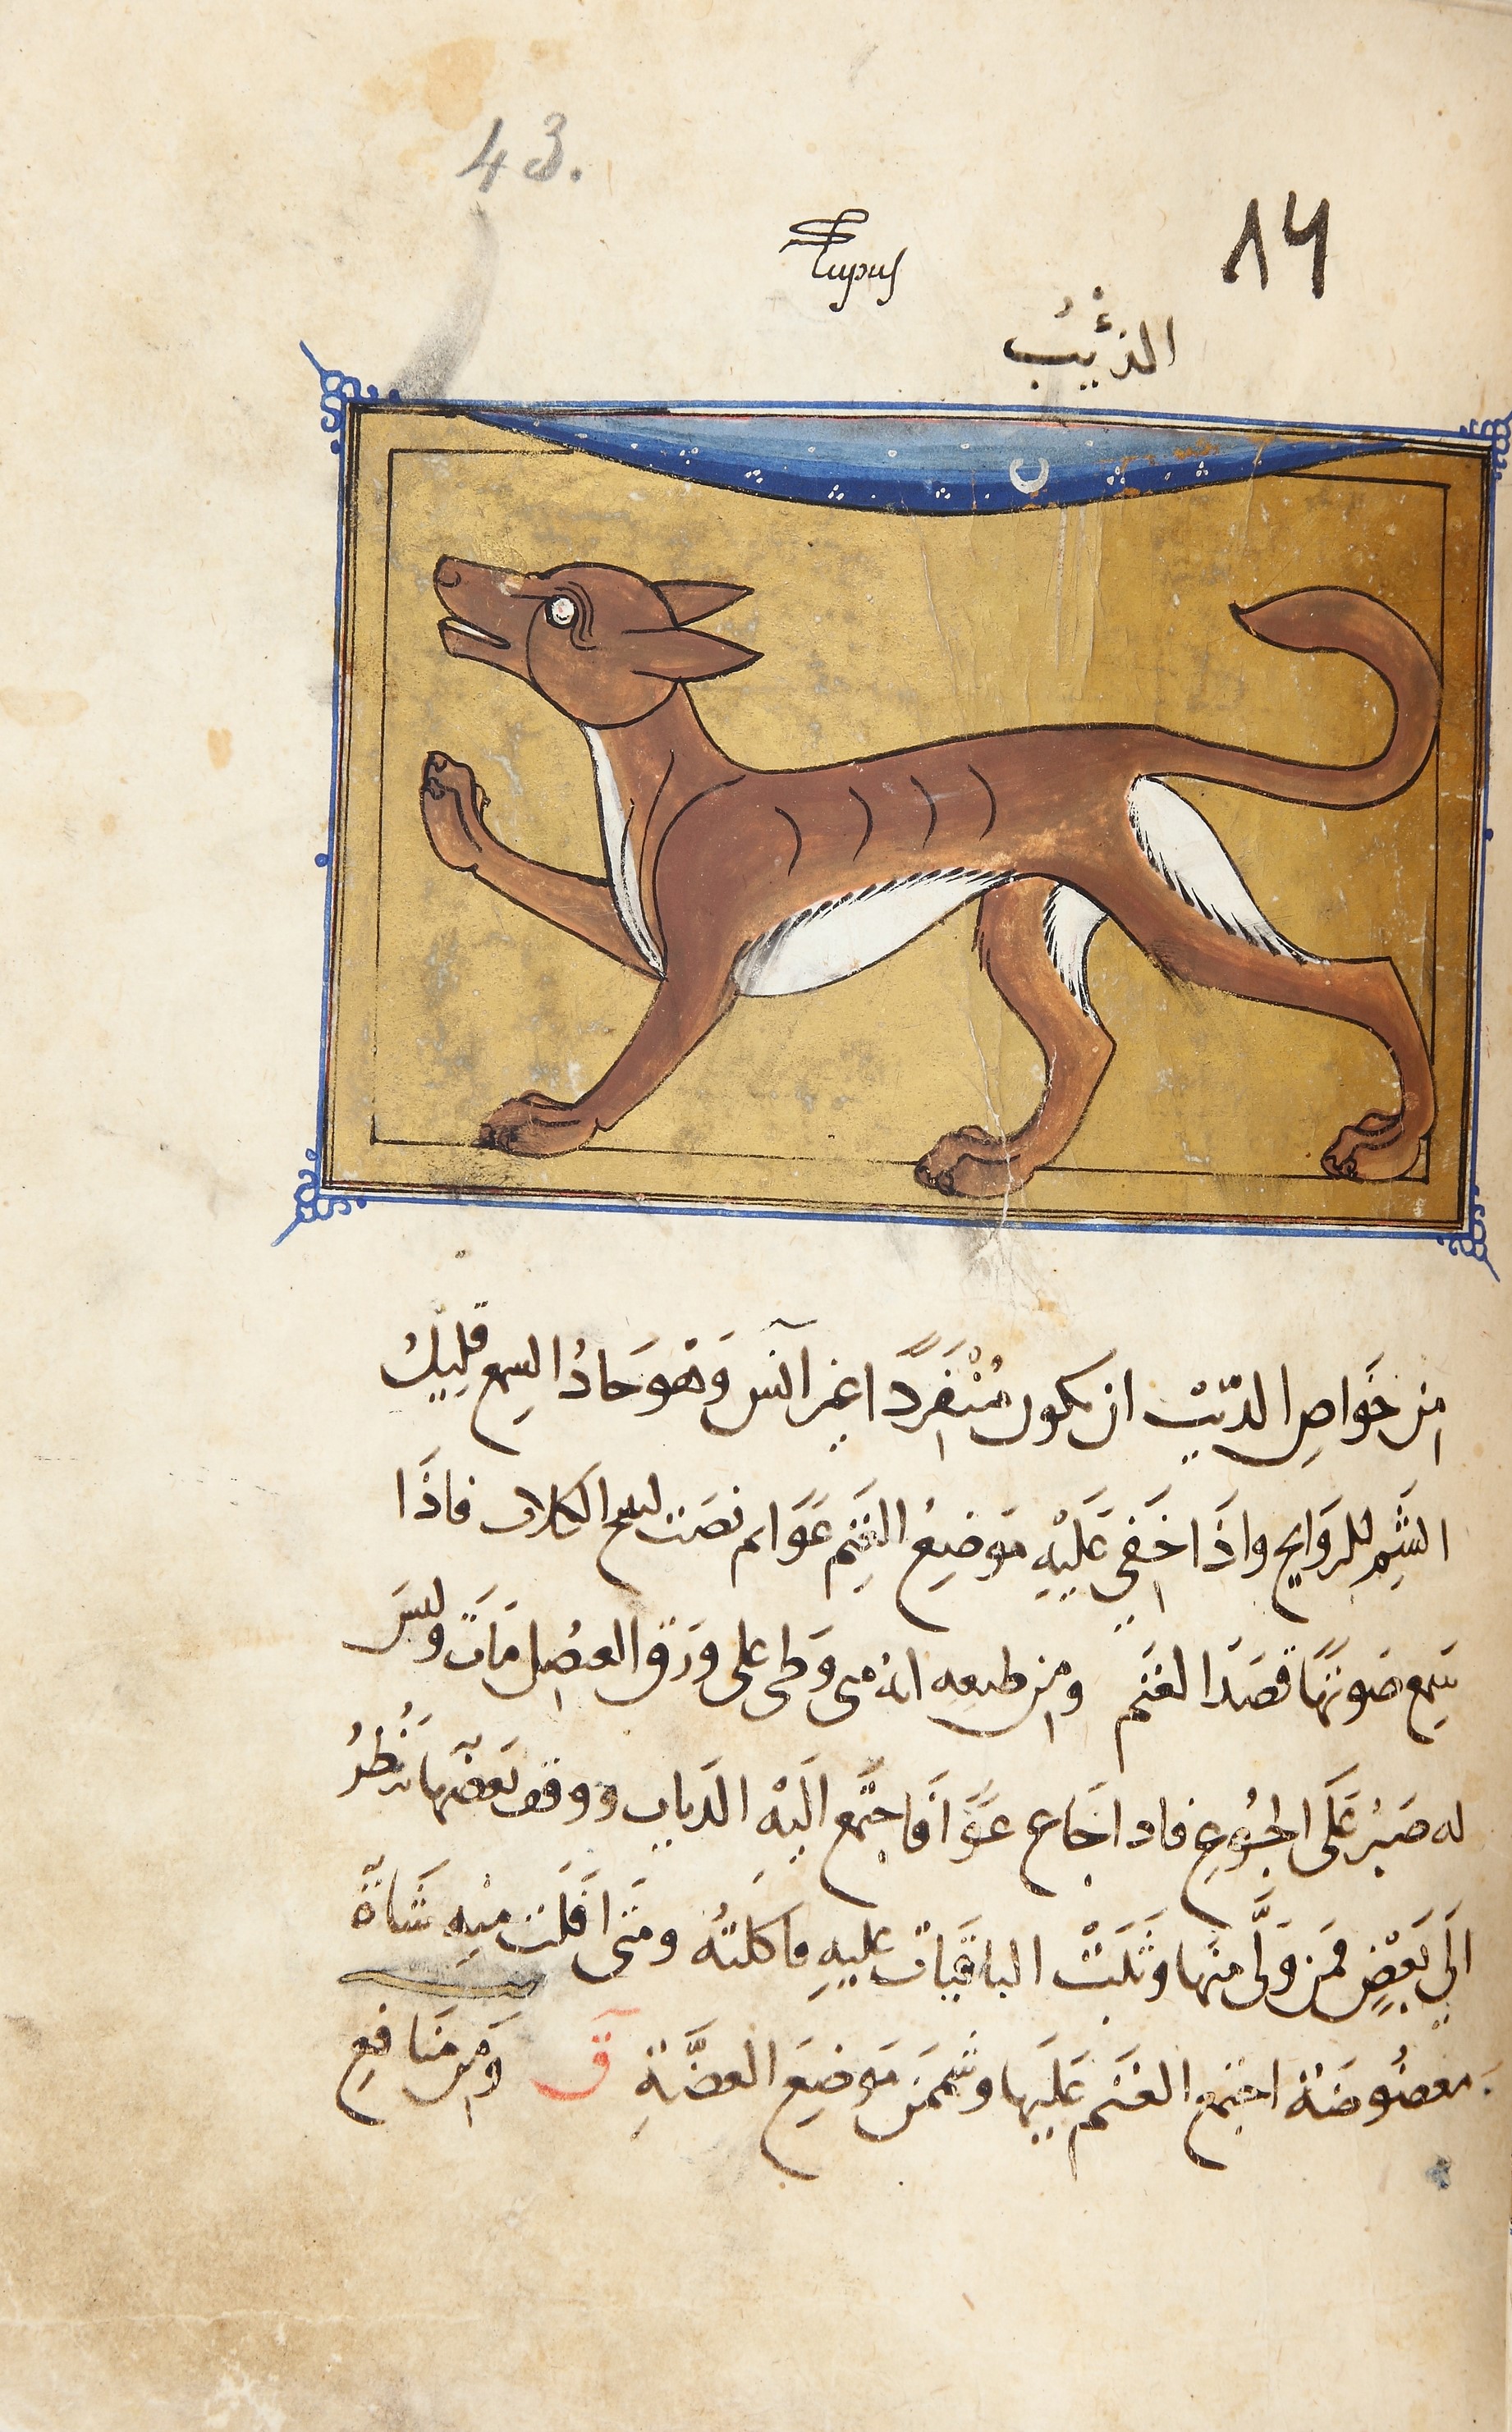 43.
lupus
14
الذئيب
من خَواصِ الدّيب ان يكون مُنْفَرَدًا غير آنس وَهْوَ حَادُ السمع قليل
الشَمِ للرَوايح واذَا خَفِي عَلَيْهِ مَوضِعُ الغَنَمِ عَوَا ثم نصَت لنبح الكلاب فاذَا
سَمِع صَوتهَا قصَدَ الغنَم ومن طبعه انه متى وَطى على ورَق العنصل مَاتَ وليسَ
له صَبْرٌ عَلَى الجُوعِ فاذا جَاع عوَا فَاجتمع اليْه الدياب ووقف بعضهَا ينْظرُ
الَي بَعْضٍ فمَن وَلّى منهَا وَثَبَتْ الباقيَات عليهِ فاكلتُه ومَتى افلَت منْهِ شَاةٌ
معضُوضَة اجتمع الغنَم عَليهَا وشمَمَن مَوضِعَ العضَّةِ ق وَمن منَافعِ